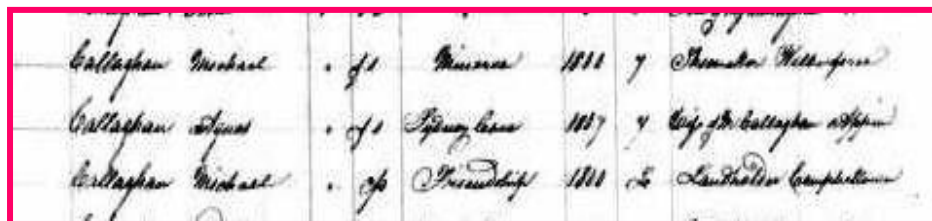 Callaghan Michael " fs Minerva 1800 7
Callaghan Agnes " fs Sydney Cove 1807 7 Wife of M. Callaghan Appin
Callaghan Michael " cp Friendship 1800 L Landholder Campbelltown